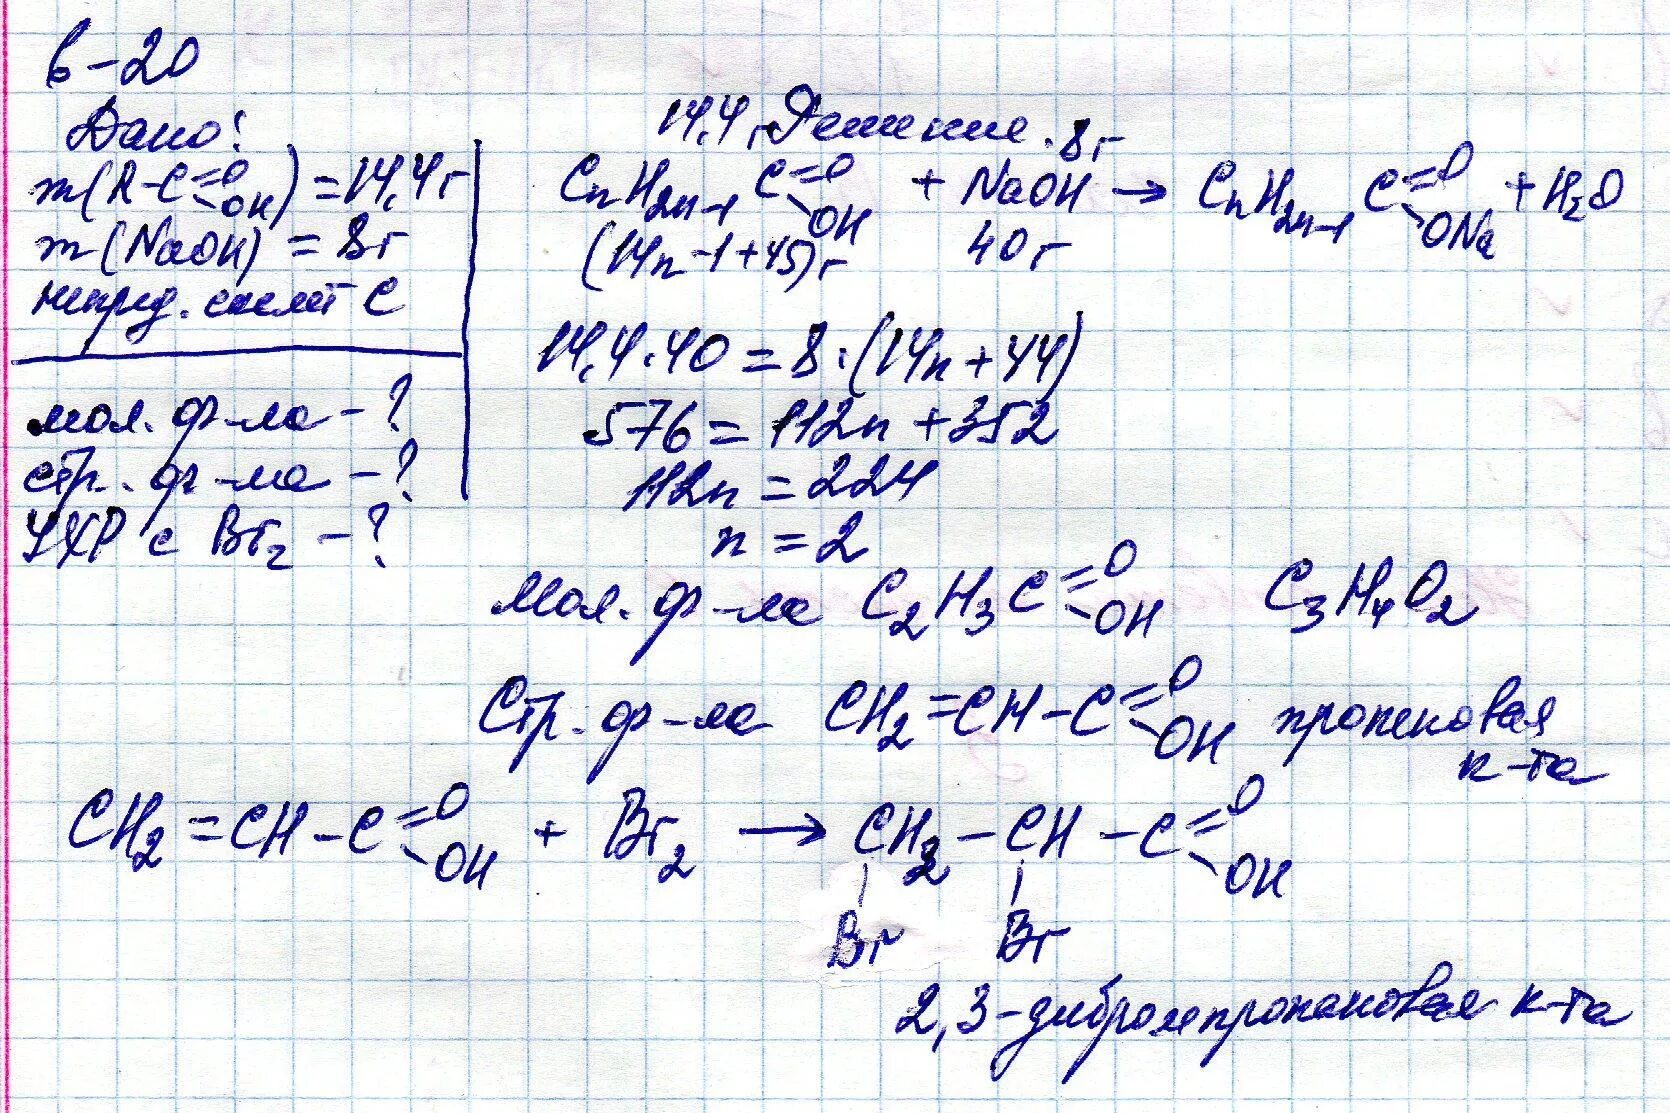 в-20
Дано:
m(R-C=O OH) = 14,4г
m(NaOH) = 8г
непред. соедин С
мол. ф-ла - ?
стр. ф-ла - ?
УХР с Br2 - ?
Решение.
14,4г 8г
CnH2n-1 C=O OH + NaOH → CnH2n-1 C=O ONa + H2O
(14n-1+45)г 40г
14,4·40 = 8·(14n+44)
576 = 112n + 352
112n = 224
n = 2
Мол. ф-ла C2H3C=O OH C3H4O2
Стр. ф-ла CH2=CH-C=O OH пропеновая
к-та
CH2=CH-C=O OH + Br2 → CH2-CH-C=O OH
Br Br
2,3-дибромпропановая к-та